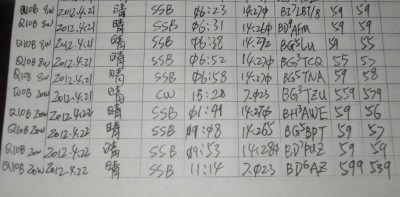 Q10B 5W 2012.4.21 晴 SSB 06:23 14.270 59 59
Q10B 5W 2012.4.21 晴 SSB 06:31 14.260 59 59
Q10B 5W 2012.4.21 晴 SSB 14.272 59 55
Q10B 5W 2012.4.21 晴 SSB 06:52 14.270 BG3TCQ 55 57
Q10B 5W 2012.4.21 晴 SSB 06:58 14.270 BG5TNA 59 58
Q10B 20W 2012.4.21 晴 CW 15:28 7.023 BG3TZU 559 579
Q10B 20W 2012.4.22 晴 SSB 01:41 14.270 BH3AWE 59 56
Q10B 20W 2012.4.22 晴 SSB 09:48 14.265 BG5BPT 59 57
Q10B 20W 2012.4.22 晴 SSB 09:53 14.284 59 59
Q10B 20W 2012.4.22 晴 SSB 11:14 7.023 BD6AZ 599 539